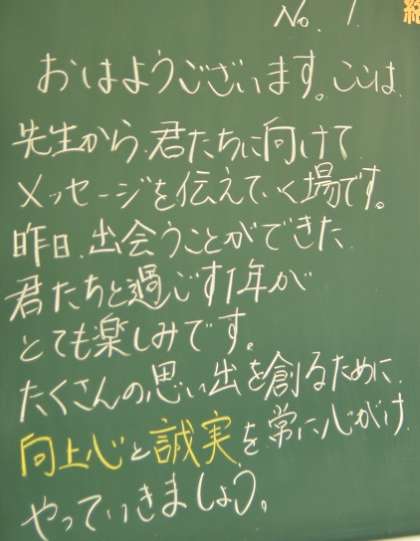 No. 1.
おはようございます。ここは、
先生から、君たちに向けて
メッセージを伝えていく場です。
昨日、出会うことができた
君たちと過ごす1年が
とても楽しみです。
たくさんの思い出を創るために、
向上心と誠実を常に心がけ
やっていきましょう。